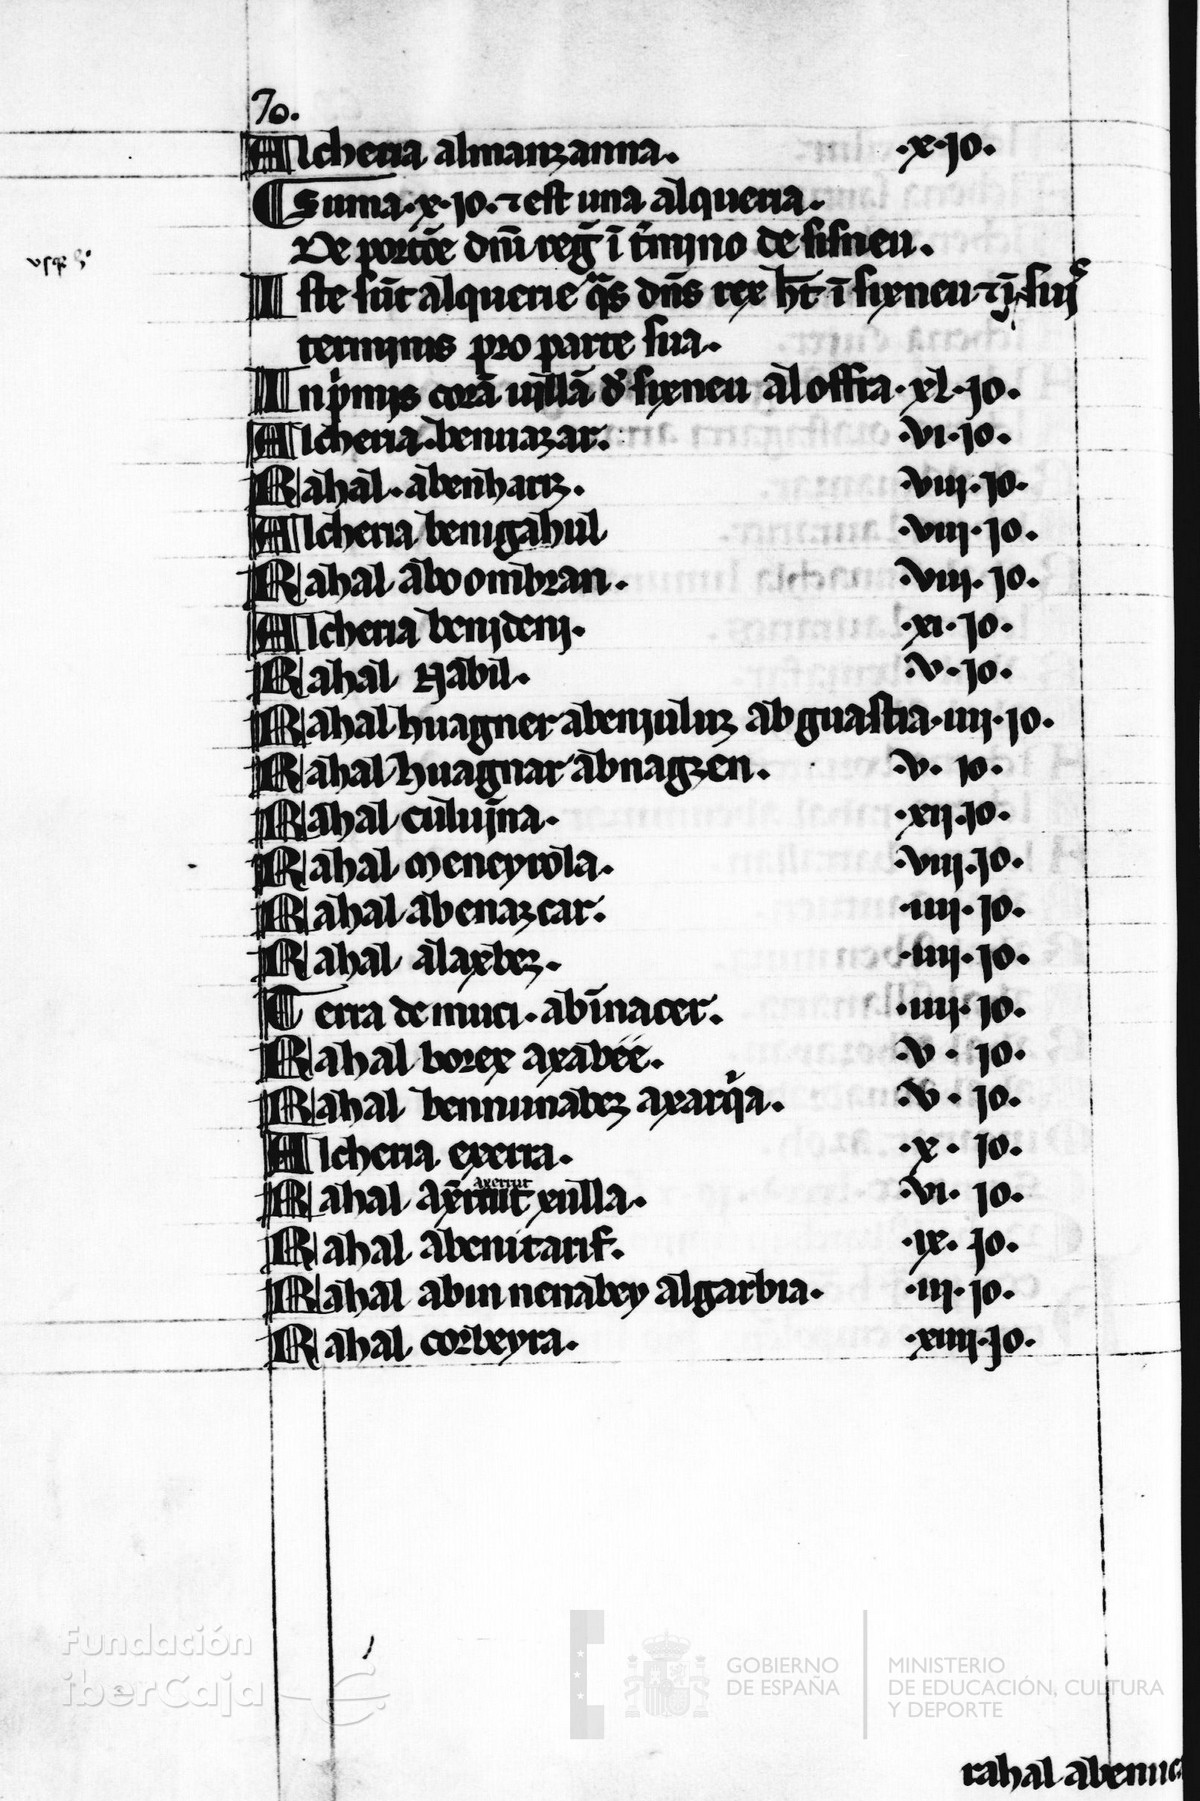 70.
Alcheria almanzanna. ·x·jo.
Suma·x·jo. ⁊ est una alqueria.
De portōe dnī regꝭ ī t̄mino de sisneu.
Iste sūt alquerie q̄s dn̄s rex h̄t ī sixneu ⁊ ī suis
terminis pro parte sua.
Inpⁱmis corā uillā d̄ sixneu aloffra·xl·jo.
Alcheria·benuazar. ·vi·jo.
Rahal·abenharz. ·viii·jo.
Alcheria benigahul ·viii·jo.
Rahal abo ombran. ·viii·jo.
Alcheria benideni. ·xi·jo.
Rahal Nabil. ·v·jo.
Rahal huagner abenjuluz ab guastia·iiij·jo.
Rahal huagnar abnagzen. ·v·jo.
Rahal culuīna. ·xij·jo.
Rahal meneyrola. ·viii·jo.
Rahal abenazcar. ·iiij·jo.
Rahal alaxbez. ·iiij·jo.
Terra de muci·abīnacer. ·iiij·jo.
Rahal borex axabee. ·v·jo.
Rahal bennunabez axarqⁱa. ·v·jo.
Alcheria exerra. ·x·jo.
Axertut
Rahal xulla. ·vi·jo.
Rahal abenitarif. ·ix·jo.
Rahal abin nenabey algarbia. ·iii·jo.
Rahal corbeyra. ·xiiij·jo.
rahal
Fundación
iberCaja
GOBIERNO
DE ESPAÑA
MINISTERIO
DE EDUCACIÓN, CULTURA
Y DEPORTE